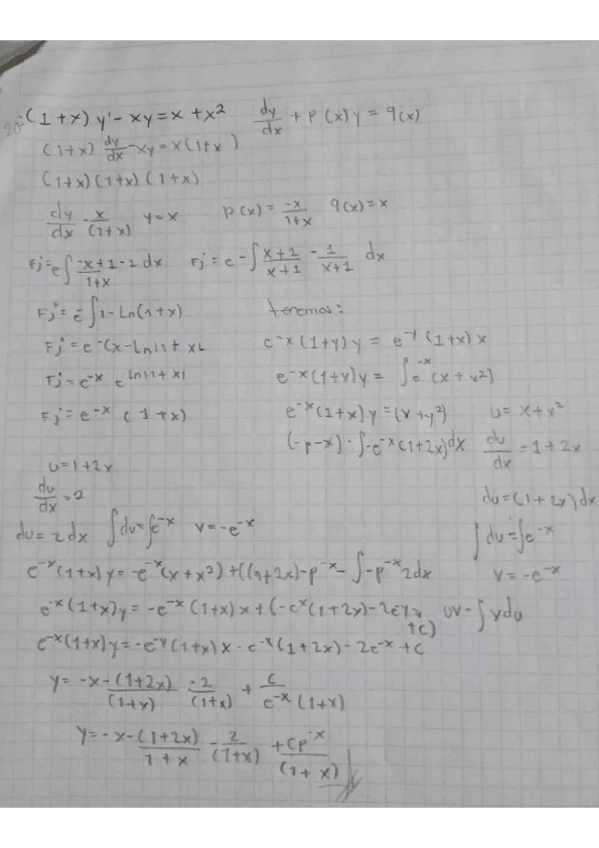 20.- (1+x) y' - xy = x + x² dy/dx + P(x)y = q(x)
(1+x) dy/dx - xy = x(1+x)
(1+x) (1+x) (1+x)
dy/dx - x/(1+x) y = x p(x) = -x/1+x q(x) = x
Fj = e∫ -x+1-1 dx/1+x Fj = e -∫ x+1/x+1 - 1/x+1 dx
Fj = e⁻∫1 - Ln(1+x) tenemos:
Fj = e^-(x - Ln|1+x| e^-x (1+x) y = e^-x (1+x) x
Fj = e^-x e^Ln|1+x| e^-x (1+x) y = ∫e^-x (x + x²)
Fj = e^-x (1+x) e^-x (1+x) y = (x+x²) u = x + x²
(-e-x) - ∫-e^-x (1+2x) dx du/dx = 1+2x
u = 1+2x
du/dx = 2 du = (1+2x) dx
du = 2dx ∫dv = ∫e^-x v = -e^-x ∫dv = ∫e^-x
v = -e^-x
e^-x (1+x) y = -e^-x (x+x²) + ((1+2x) - e^-x - ∫-e^-x 2dx
e^-x (1+x) y = -e^-x (1+x) x + (-e^x (1+2x) - 2e^-x + c) uv - ∫vdu
e^-x (1+x) y = -e^-x (1+x) x - e^-x (1+2x) - 2e^-x + c
y = -x - (1+2x)/(1+x) -2/(1+x) + c/e^-x (1+x)
y = -x - (1+2x)/1+x - 2/(1+x) + ce^-x/(1+x)